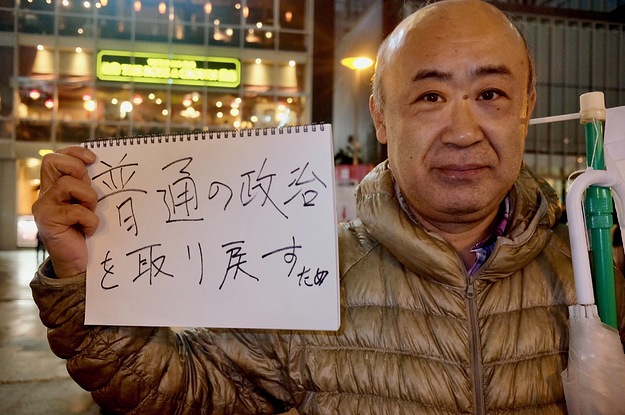 普通の政治
を取り戻すため